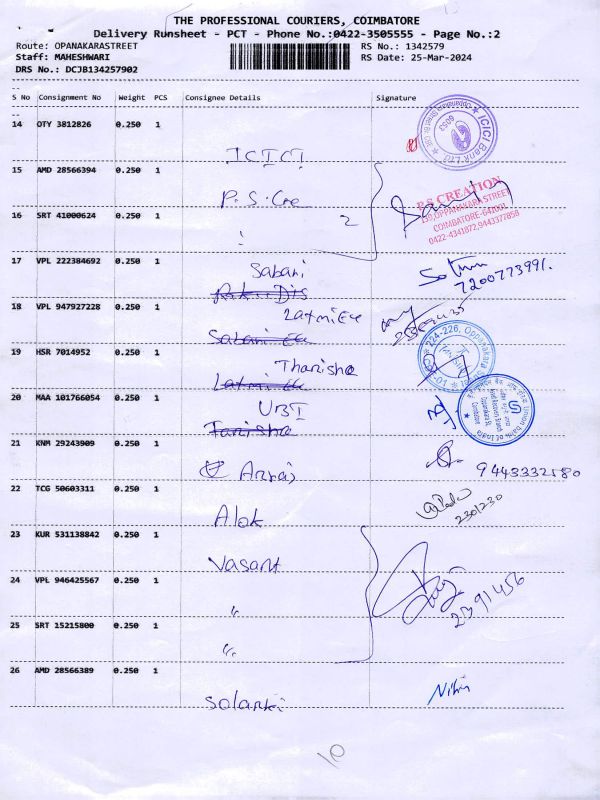 THE PROFESSIONAL COURIERS, COIMBATORE
Delivery Runsheet - PCT - Phone No.:0422-3505555 - Page No.:2
Route: OPANAKARASTREET RS No.: 1342579
Staff: MAHESHWARI RS Date: 25-Mar-2024
DRS No.: DCJB134257902
S No Consignment No Weight PCS Consignee Details Signature
14 OTY 3812826 0.250 1 ICICI
ICICI Bank Ltd
15 AMD 28566394 0.250 1 P.S. Cre
16 SRT 41000624 0.250 1 2
P.S CREATION
OPPANAKARA STREET
COIMBATORE-641001
0422-4341872,9443372858
17 VPL 222384692 0.250 1 Sabari
7200773991.
18 VPL 947927228 0.250 1
224-226, Oppanakara
19 HSR 7014952 0.250 1 Thanisha
20 MAA 101766054 0.250 1 UBI
Union bank of India
21 KNM 29243909 0.250 1
9443332580
22 TCG 50603311 0.250 1 Alok
2301230
23 KUR 531138842 0.250 1 Vasant
24 VPL 946425567 0.250 1 "
2391456
25 SRT 15215800 0.250 1 "
26 AMD 28566389 0.250 1 Solanki
Nithin
10